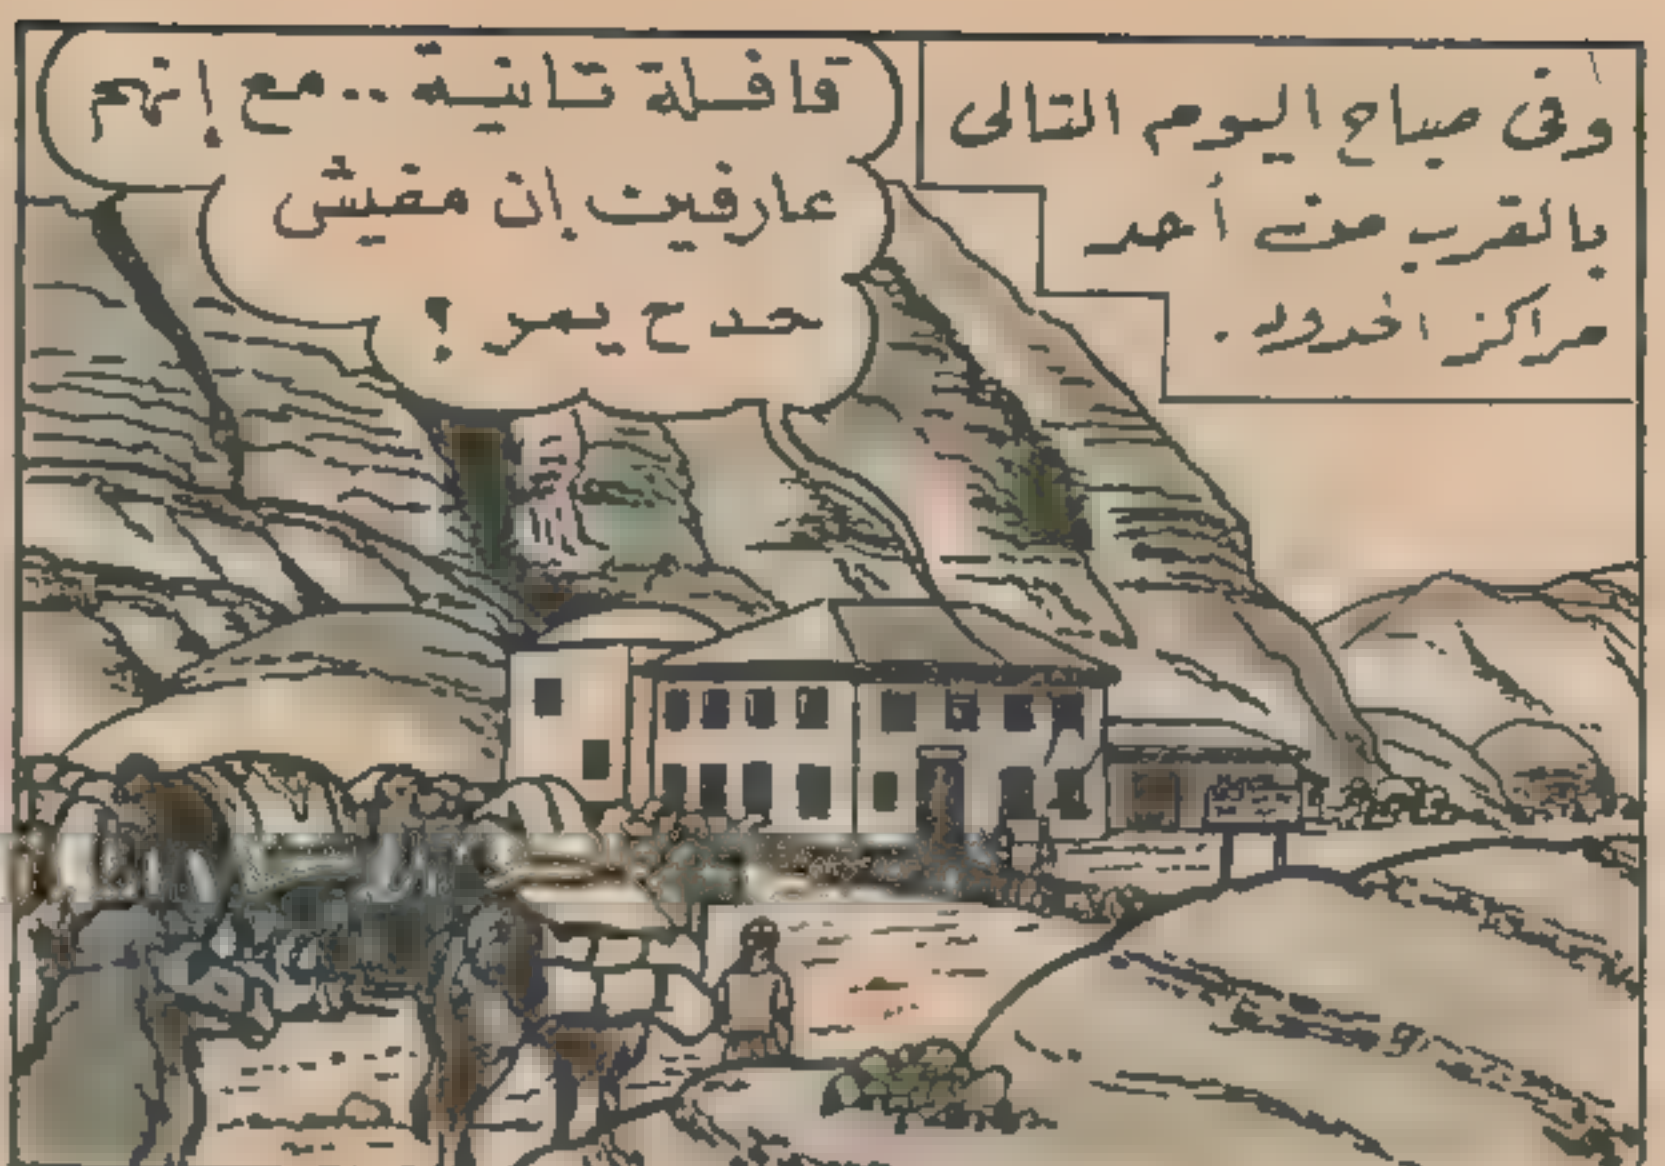 وفى صباح اليوم التالى
بالقرب من أحد
مراكز الحدود .
قافلة تانية .. مع إنهم
عارفين إن مفيش
حد ح يمر ؟